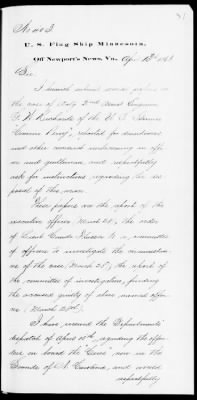 No 203
U. S. Flag Ship Minnesota,
Off Newport's News, Va., Apr 13th 1863
Sir
I herewith submit some papers in
the case of Actg 2nd Asst Engineer
F. W. Richards of the U. S. Steamer
"Commo Perry", reported for drunkenness
and other conduct unbecoming an offi-
cer and gentleman, and respectfully
ask for instructions regarding the dis-
posal of this man.
These papers are the report of the
executive officer, March 24th, the order
of Lieut Comdr to a committee
of officers to investigate the circumstan-
ces of the case (March 25th), the report of
the committee of investigation, finding
the accused guilty of above named offen-
ces (March 28th).
I have received the Department's
dispatch of April 10th, regarding the offi-
cers on board the "Ceres", now in the
Sounds of N. Carolina, and would
respectfully